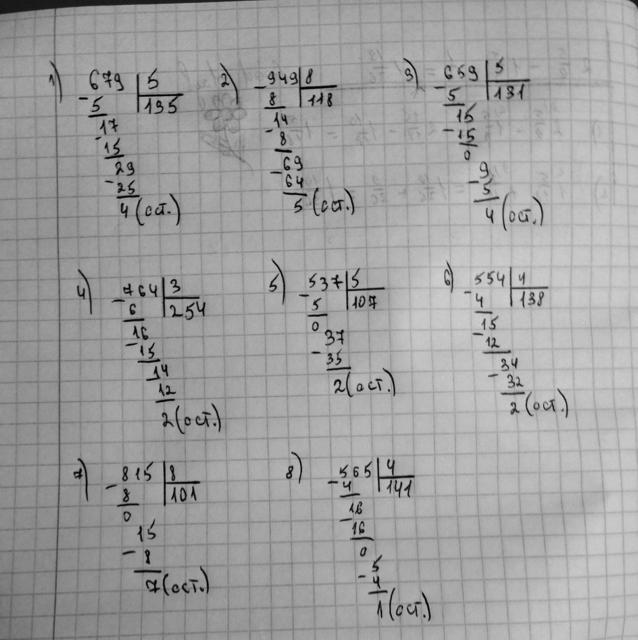 1) 679 | 5
- 5 | 135
17
- 15
29
- 25
4 (ост.)
2) 949 | 8
- 8 | 118
14
- 8
69
- 64
5 (ост.)
3) 659 | 5
- 5 | 131
15
- 15
0
9
- 5
4 (ост.)
4) 764 | 3
- 6 | 254
16
- 15
14
12
2 (ост.)
5) 537 | 5
- 5 | 107
0
37
- 35
2 (ост.)
6) 554 | 4
- 4 | 138
15
- 12
34
- 32
2 (ост.)
7) 815 | 8
- 8 | 101
0
15
- 8
7 (ост.)
8) 565 | 4
- 4 | 141
16
- 16
0
5
- 4
1 (ост.)